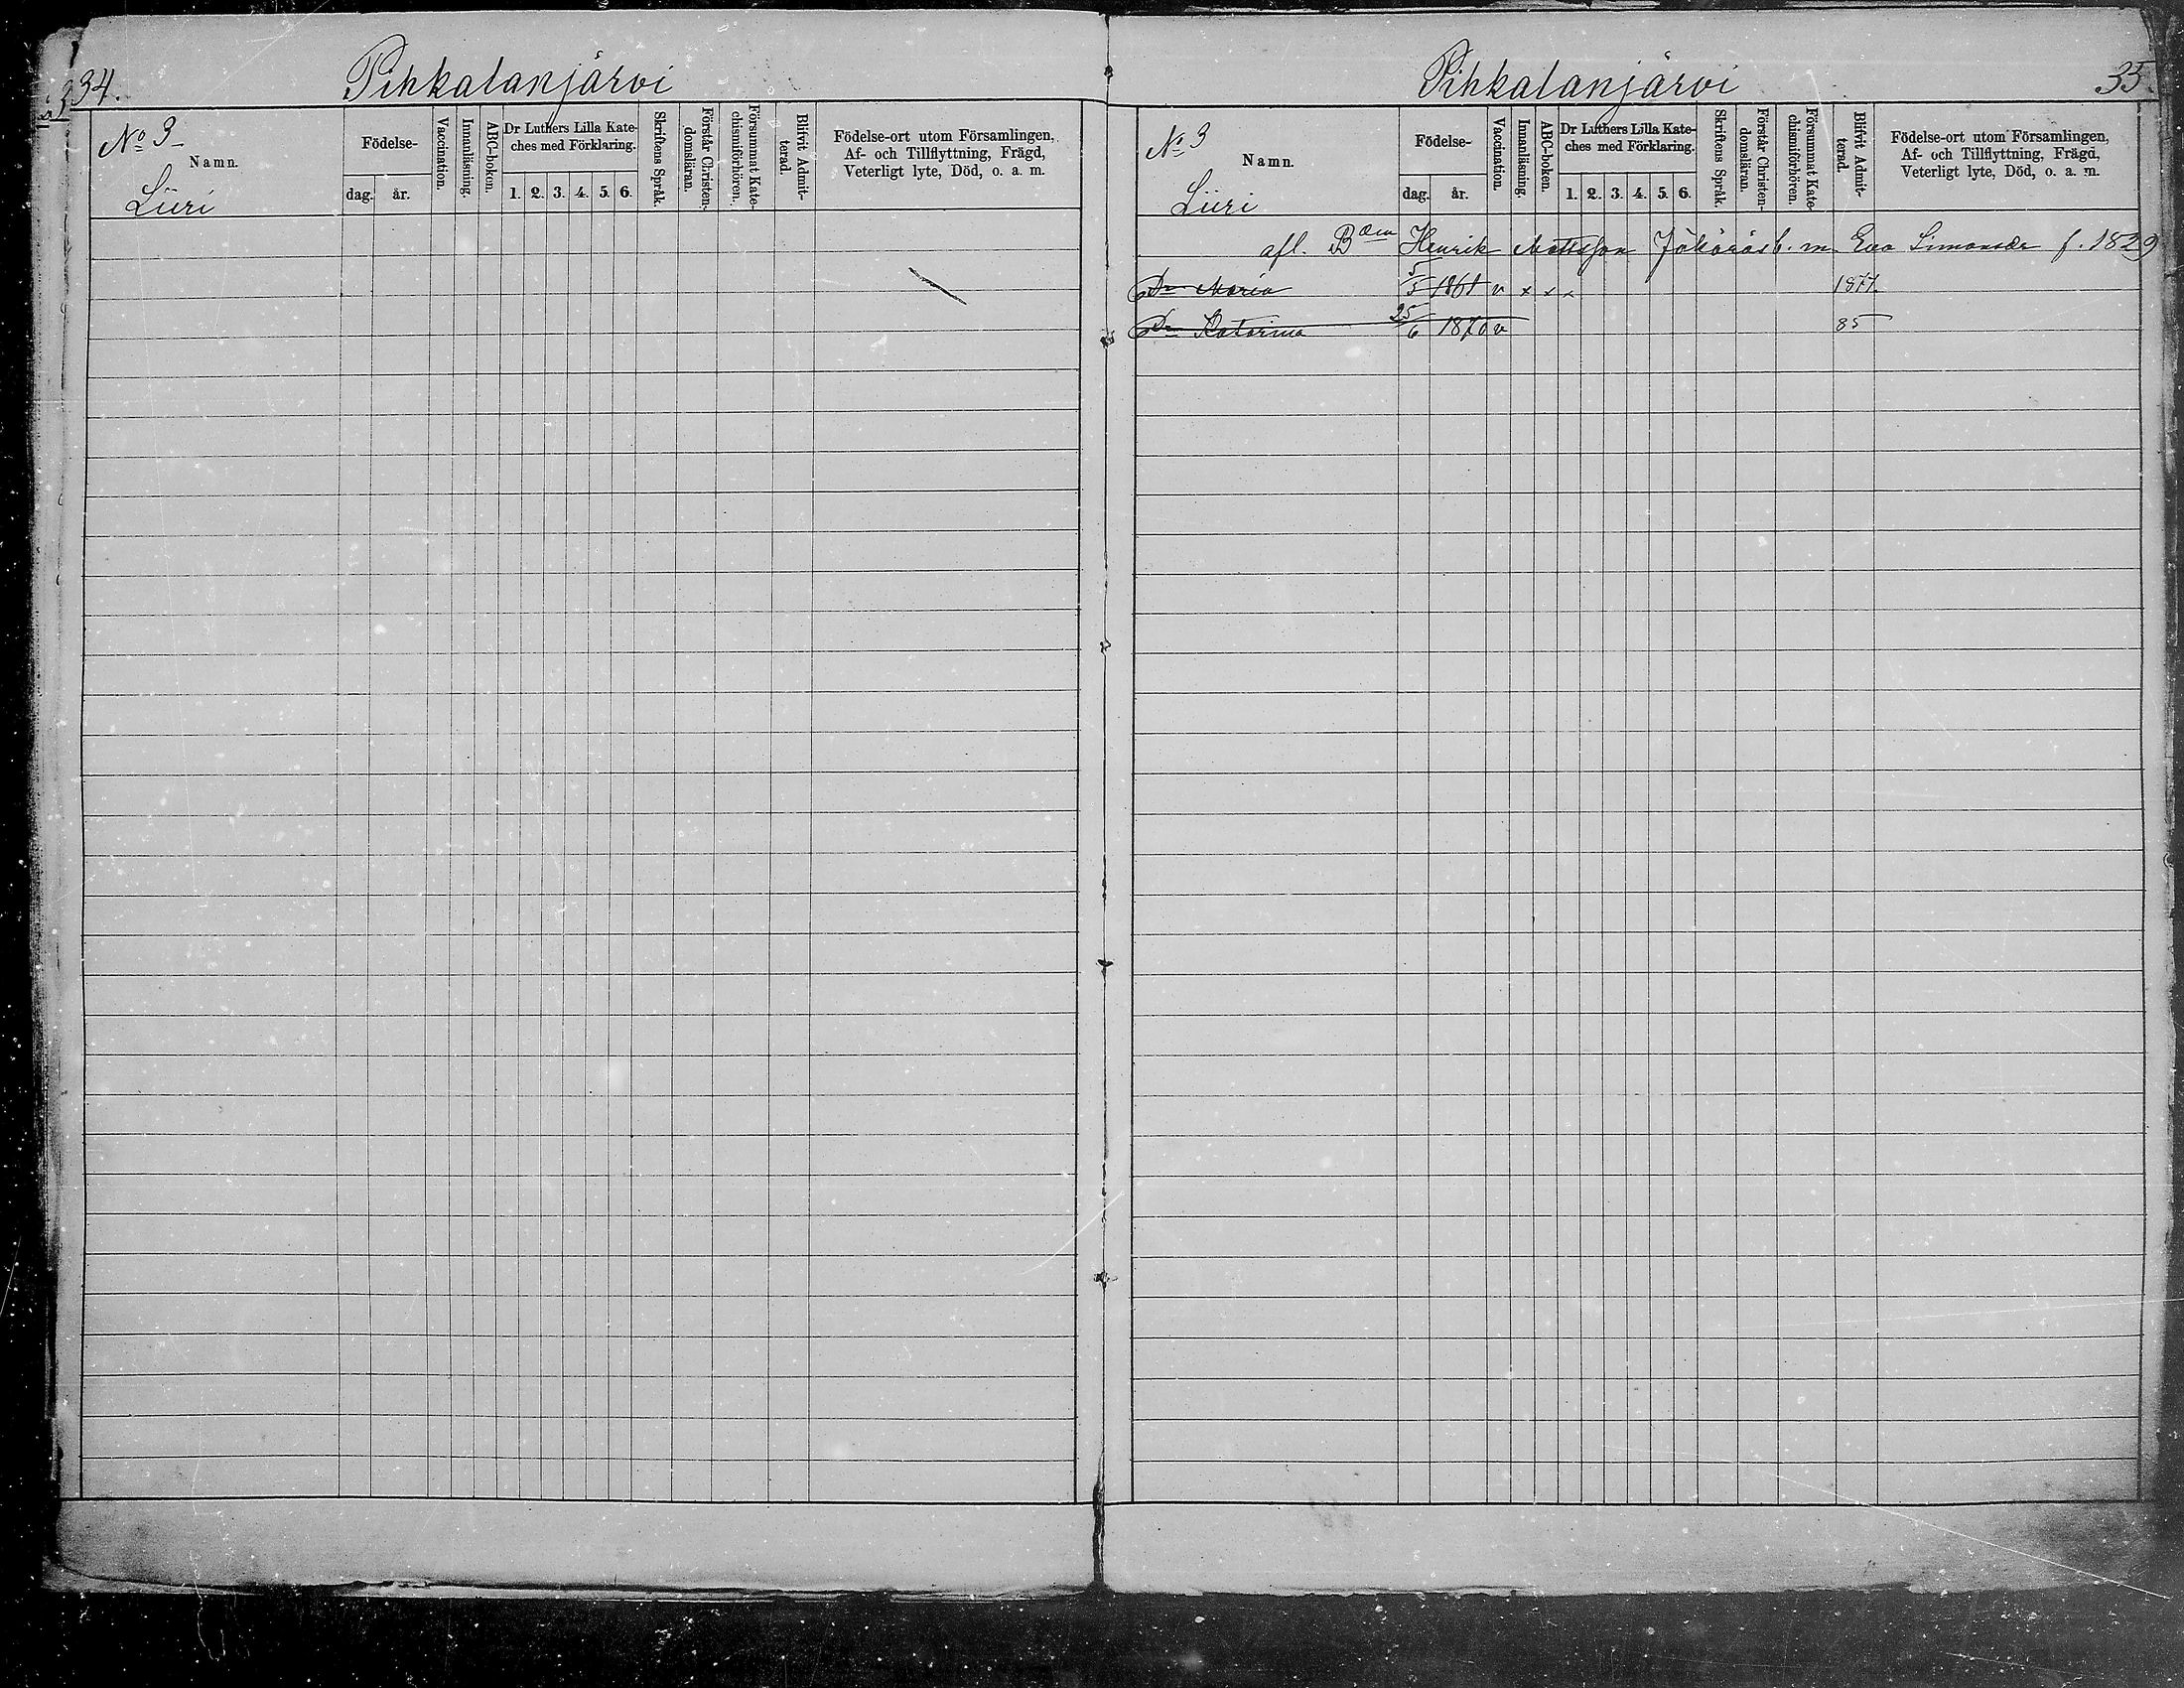 34.
Pihkalanjärvi
No 3
Namn.
Liiri
Födelse-
dag. år.
Vaccination.
Innanläsning.
ABC-boken.
Dr Luthers Lilla Kate-
ches med Förklaring.
1. 2. 3. 4. 5. 6.
Skriftens Språk.
Förstår Christen-
domsläran.
Försummat Kate-
chismiförhören.
Blifvit Admit-
terad.
Födelse-ort utom Församlingen,
Af- och Tillflyttning, Frägd,
Veterligt lyte, Död, o. a. m.
Pihkalanjärvi
35.
No 3
Namn.
Liiri
Födelse-
dag. år.
Vaccination.
Innanläsning.
ABC-boken.
Dr Luthers Lilla Kate-
ches med Förklaring.
1. 2. 3. 4. 5. 6.
Skriftens Språk.
Förstår Christen-
domsläran.
Försummat Kate-
chismiförhören.
Blifvit Admit-
terad.
Födelse-ort utom Församlingen,
Af- och Tillflyttning, Frägd,
Veterligt lyte, Död, o. a. m.
afl. Bden Henrik Mattsson b. m. Eva Simonsdr f. 1829
Dr Maria 5/5 1861 v x x x 1877.
Dr Katarina 25/6 1870 v 85